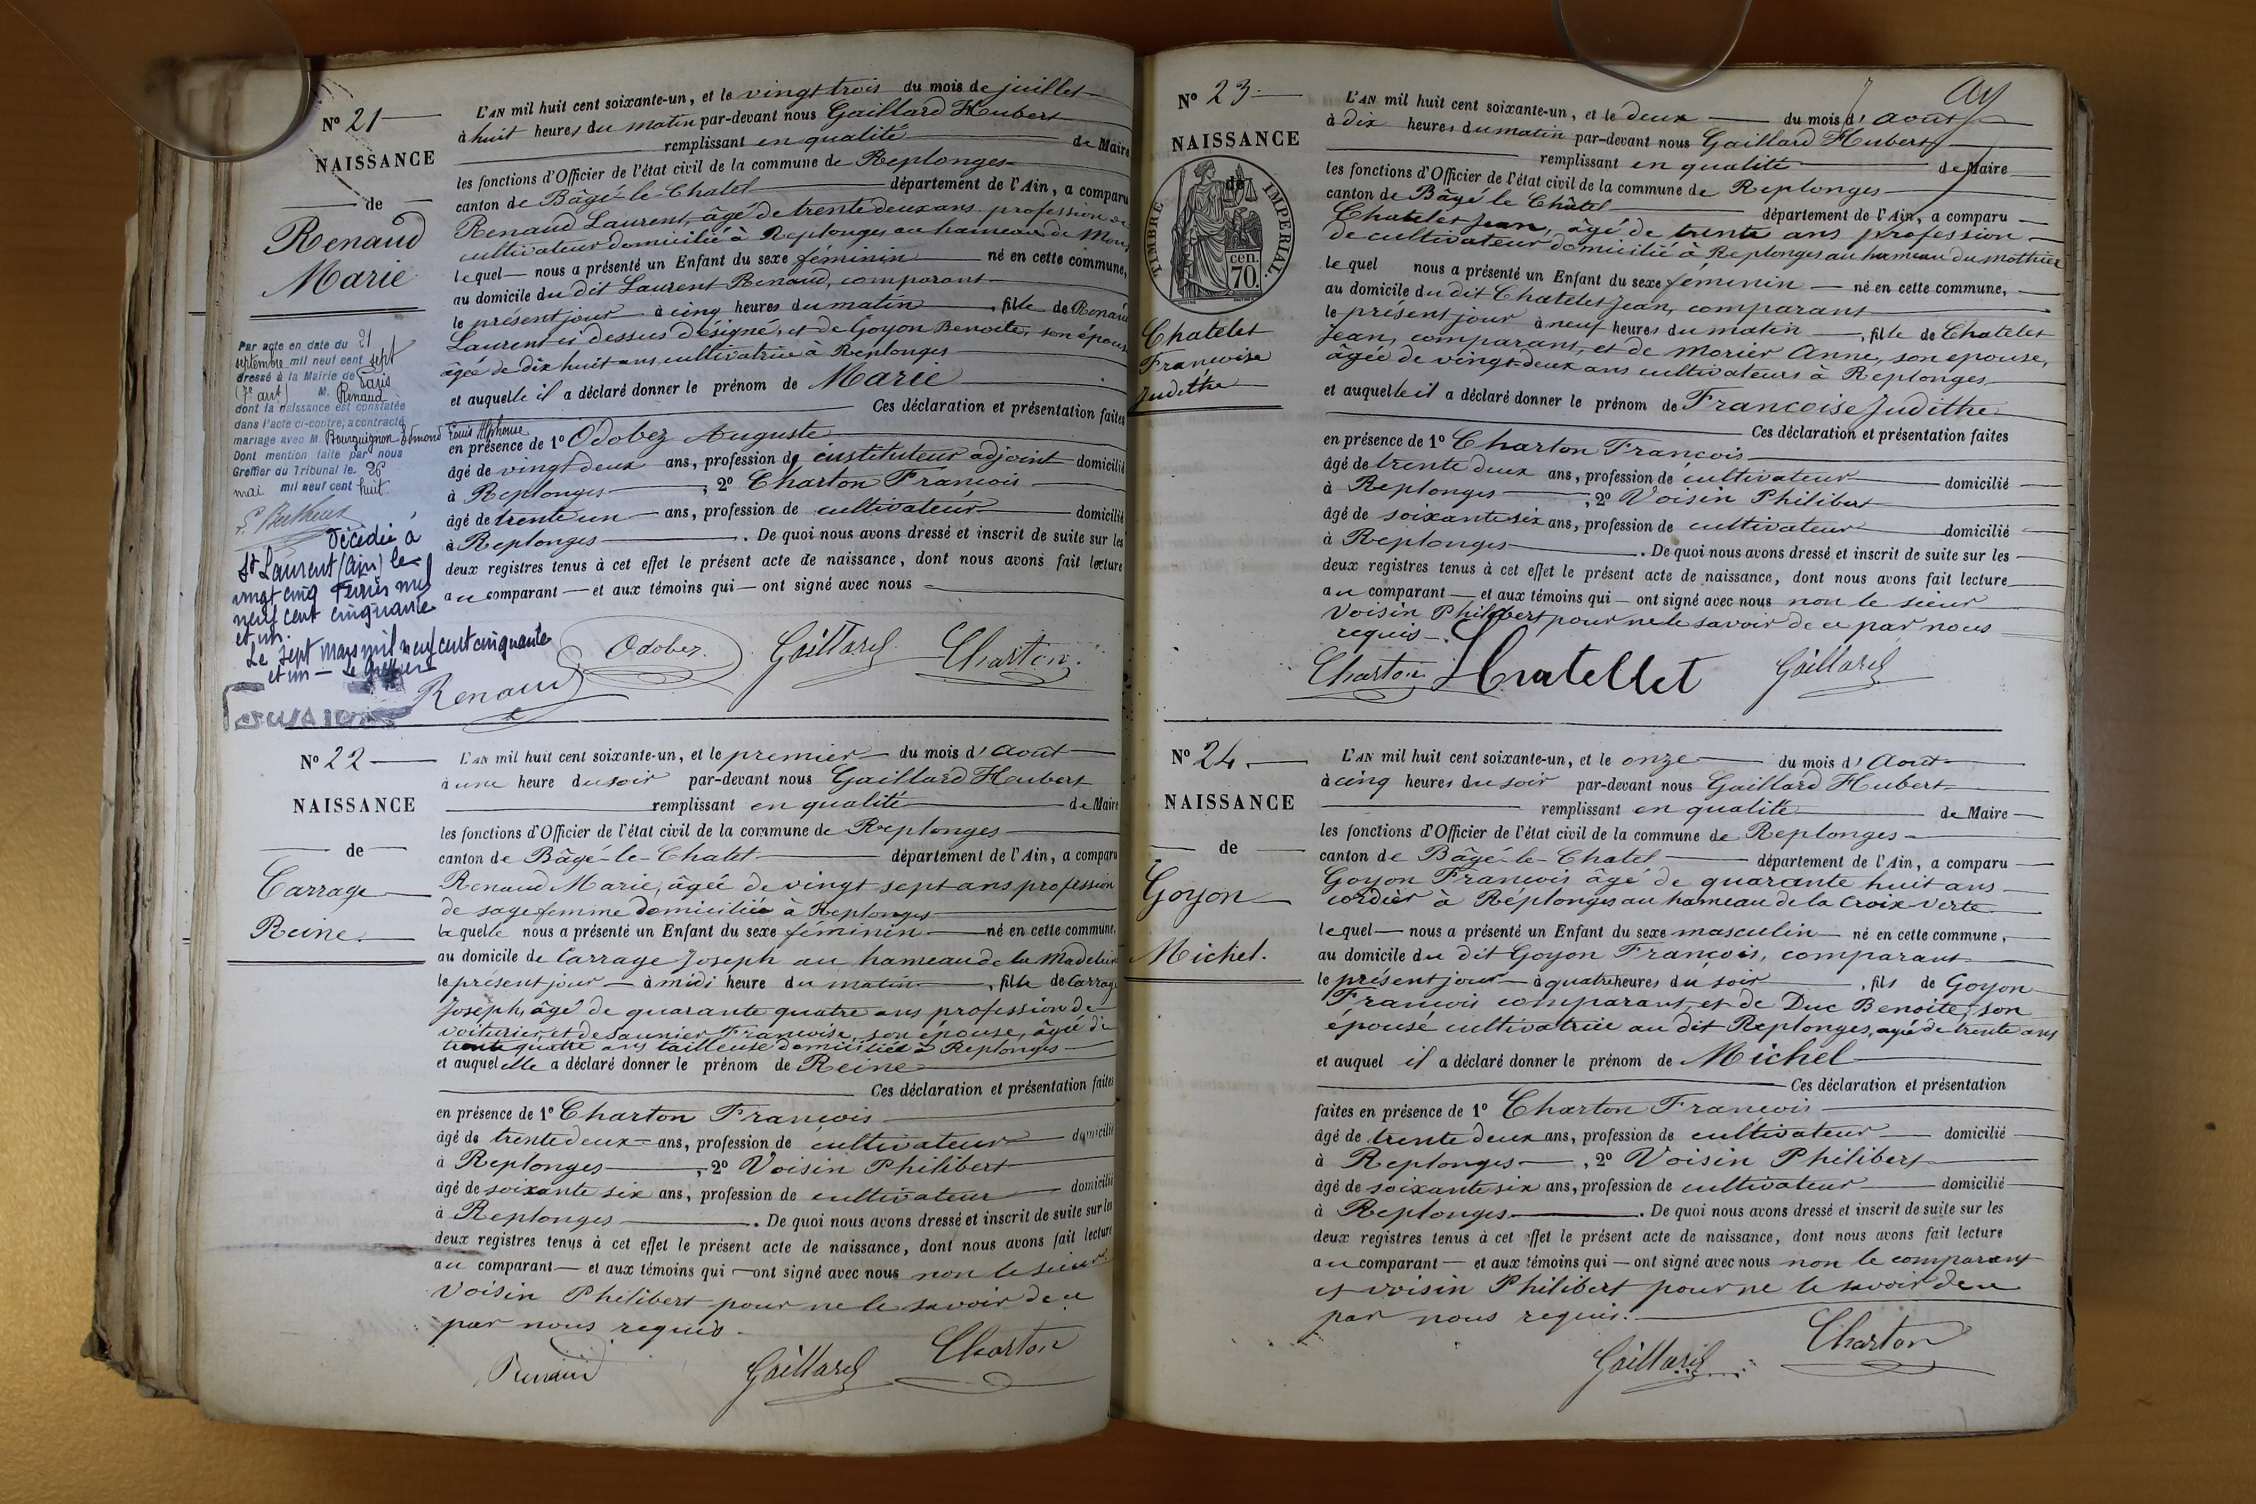 N° 21
NAISSANCE
de
Renaud
Marie
Par acte en date du 21
septembre mil neuf cent sept
dressé à la Mairie de Paris
(7e arrt) M. Renaud
dont la naissance est constatée
dans l'acte ci-contre, a contracté
mariage avec M. Bourguignon Edmond Louis Alphonse
Dont mention faite par nous
Greffier du Tribunal le 26
mai mil neuf cent huit.
Décédée à
St Laurent (Ain) le
vingt cinq Février mil
neuf cent cinquante
et un.
Le sept mars mil neuf cent cinquante
et un — Le Greffier
L'AN mil huit cent soixante-un, et le vingt trois du mois de juillet
à huit heures du matin par-devant nous Gaillard Hubert
remplissant en qualité de Maire
les fonctions d'Officier de l'état civil de la commune de Replonges
canton de Bâgé-le-Chatel département de l'Ain, a comparu
Renaud Laurent, âgé de trente deux ans profession de
cultivateur domicilié à Replonges au hameau de
le quel nous a présenté un Enfant du sexe féminin né en cette commune,
au domicile du dit Laurent Renaud, comparant
le présent jour à cinq heures du matin, fille de Renaud
Laurent ci dessus désigné, et de Goyon Benoite, son épouse
âgée de dix huit ans, cultivatrice à Replonges
et auquelle il a déclaré donner le prénom de Marie
Ces déclaration et présentation faites
en présence de 1° Odobez Auguste
âgé de vingt deux ans, profession de instituteur adjoint domicilié
à Replonges, 2° Charton François
âgé de trente un ans, profession de cultivateur domicilié
à Replonges. De quoi nous avons dressé et inscrit de suite sur les
deux registres tenus à cet effet le présent acte de naissance, dont nous avons fait lecture
au comparant et aux témoins qui ont signé avec nous
Odobez. Gaillard Charton
Renaud
N° 22
NAISSANCE
de
Carrage
Reine
L'AN mil huit cent soixante-un, et le premier du mois d'Août
à une heure du soir par-devant nous Gaillard Hubert
remplissant en qualité de Maire
les fonctions d'Officier de l'état civil de la commune de Replonges
canton de Bâgé-le-Chatel département de l'Ain, a comparu
Renaud Marie, âgée de vingt sept ans profession
de sage femme domiciliée à Replonges
la quelle nous a présenté un Enfant du sexe féminin né en cette commune,
au domicile de Carrage Joseph au hameau de la Madeleine
le présent jour à midi heure du matin, fille de Carrage
Joseph, âgé de quarante quatre ans profession de
voiturier, et de Saunier Françoise, son épouse, âgée de
trente quatre ans tailleuse domiciliée à Replonges
et auquel elle a déclaré donner le prénom de Reine
Ces déclaration et présentation faites
en présence de 1° Charton François
âgé de trente deux ans, profession de cultivateur domicilié
à Replonges, 2° Voisin Philibert
âgé de soixante six ans, profession de cultivateur domicilié
à Replonges. De quoi nous avons dressé et inscrit de suite sur les
deux registres tenus à cet effet le présent acte de naissance, dont nous avons fait lecture
au comparant et aux témoins qui ont signé avec nous non le sieur
Voisin Philibert pour ne le savoir de ce
par nous requis.
Renaud Gaillard Charton
N° 23
NAISSANCE
de
TIMBRE IMPERIAL.
cen.
70.
Chatelet
Françoise
Judithe
L'AN mil huit cent soixante-un, et le deux du mois d'Août
à dix heures du matin par-devant nous Gaillard Hubert
remplissant en qualité de Maire
les fonctions d'Officier de l'état civil de la commune de Replonges
canton de Bâgé le Châtel département de l'Ain, a comparu
Chatelet Jean, âgé de trente ans profession
de cultivateur domicilié à Replonges au hameau du Mothier
le quel nous a présenté un Enfant du sexe féminin né en cette commune,
au domicile du dit Chatelet Jean, comparant
le présent jour à neuf heures du matin, fille de Chatelet
Jean, comparant, et de Morier Anne, son epouse,
âgée de vingt-deux ans cultivateurs à Replonges
et auquelle il a déclaré donner le prénom de Françoise Judithe
Ces déclaration et présentation faites
en présence de 1° Charton François
âgé de trente deux ans, profession de cultivateur domicilié
à Replonges, 2° Voisin Philibert
âgé de soixante six ans, profession de cultivateur domicilié
à Replonges. De quoi nous avons dressé et inscrit de suite sur les
deux registres tenus à cet effet le présent acte de naissance, dont nous avons fait lecture
au comparant et aux témoins qui ont signé avec nous non le sieur
Voisin Philibert pour ne le savoir de ce par nous
requis.
Charton Chatellet Gaillard
N° 24
NAISSANCE
de
Goyon
Michel.
L'AN mil huit cent soixante-un, et le onze du mois d'Août
à cinq heures du soir par-devant nous Gaillard Hubert
remplissant en qualité de Maire
les fonctions d'Officier de l'état civil de la commune de Replonges
canton de Bâgé-le-Chatel département de l'Ain, a comparu
Goyon François âgé de quarante huit ans
cordier à Réplonges au hameau de la Croix Verte
le quel nous a présenté un Enfant du sexe masculin né en cette commune,
au domicile du dit Goyon François, comparant
le présent jour à quatre heures du soir, fils de Goyon
François comparant, et de Duc Benoite, son
épouse cultivatrice au dit Replonges, agée de trente ans
et auquel il a déclaré donner le prénom de Michel
Ces déclaration et présentation
faites en présence de 1° Charton François
âgé de trente deux ans, profession de cultivateur domicilié
à Replonges, 2° Voisin Philibert
âgé de soixante six ans, profession de cultivateur domicilié
à Replonges. De quoi nous avons dressé et inscrit de suite sur les
deux registres tenus à cet effet le présent acte de naissance, dont nous avons fait lecture
au comparant et aux témoins qui ont signé avec nous non le comparant
et voisin Philibert pour ne le savoir de ce
par nous requis.
Gaillard Charton